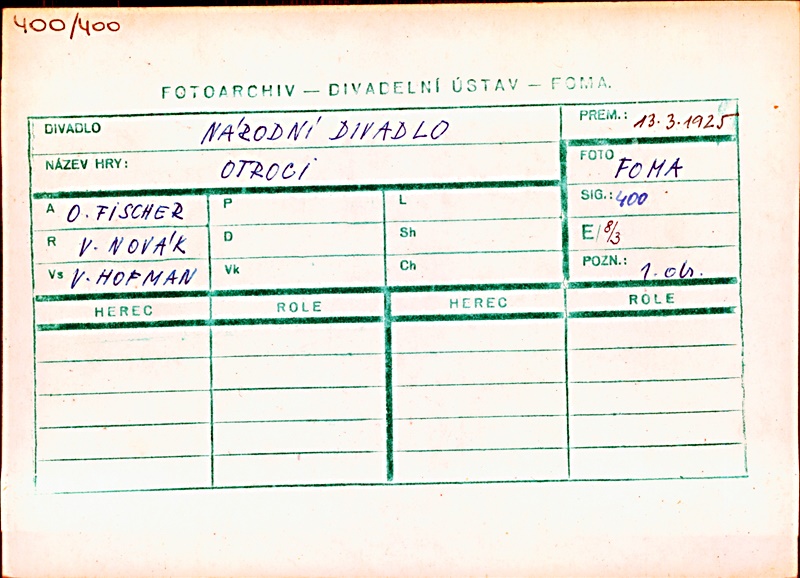 400/400
FOTOARCHIV — DIVADELNÍ ÚSTAV — FOMA.
DIVADLO NÁRODNÍ DIVADLO PREM.: 13.3.1925
NÁZEV HRY: OTROCI FOTO FOMA
A O. FISCHER P L SIG.: 400
R V. NOVÁK D Sh E/8/3
Vs V. HOFMAN Vk Ch POZN.: 1. obr.
HEREC ROLE HEREC ROLE